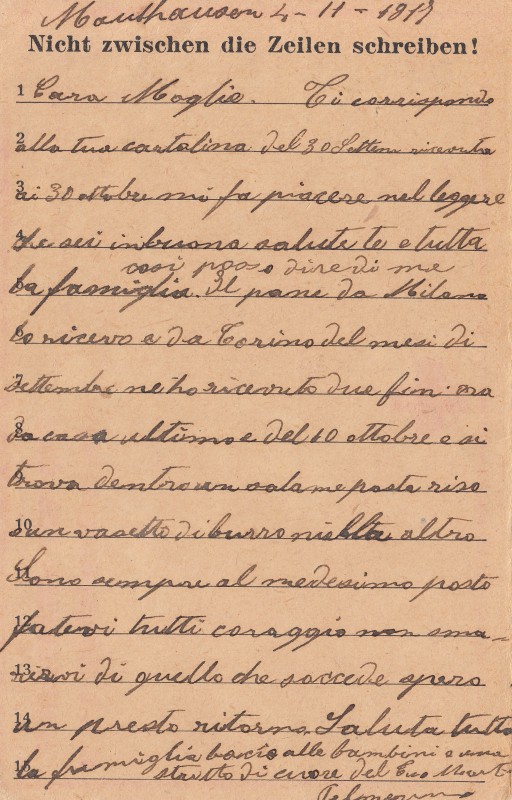 Mauthausen 4 - 11 - 1917
Nicht zwischen die Zeilen schreiben!
1 Cara Moglie. Ti corrispondo
2 alla tua cartolina del 30 Settem ricevuta
3 ai 30 ottobre mi fa piacere nel leggere
4 che sei in buona salute te e tutta
così posso dire di me
5 la famiglia. Il pane da Milano
6 lo ricevo e da Torino del mesi di
7 settembre ne ho ricevuto due fin ora
8 da casa ultimo e del 10 ottobre e si
9 trova dentro un salame pasta riso
10 e un vasetto di burro niella altro
11 Sono sempre al medesimo posto
12 fatevi tutti coraggio non sma-
13 rirvi di quello che soccede spero
14 un presto ritorno Saluta tutta
15 la famiglia bacio alle bambini e una
stretto di cuore del tuo